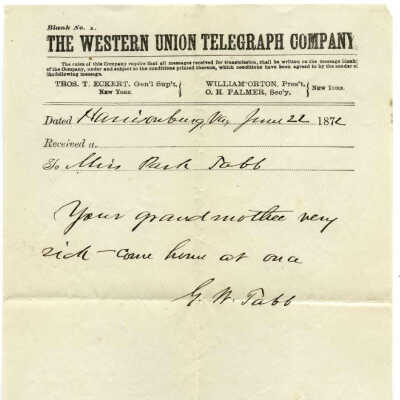 Blank No. 1.
THE WESTERN UNION TELEGRAPH COMPANY
The rules of this Company require that all messages received for transmission, shall be written on the message blanks
of the Company, under and subject to the conditions printed thereon, which conditions have been agreed to by the sender of
the following message.
THOS. T. ECKERT, Gen'l Sup't, WILLIAM ORTON, Pres't,
New York. O. H. PALMER, Sec'y. New York.
Dated Harrisonburg, Va June 22 1872
Received a
To Miss Park Tabb
Your grandmother very
sick - come home at once
G. W. Tabb